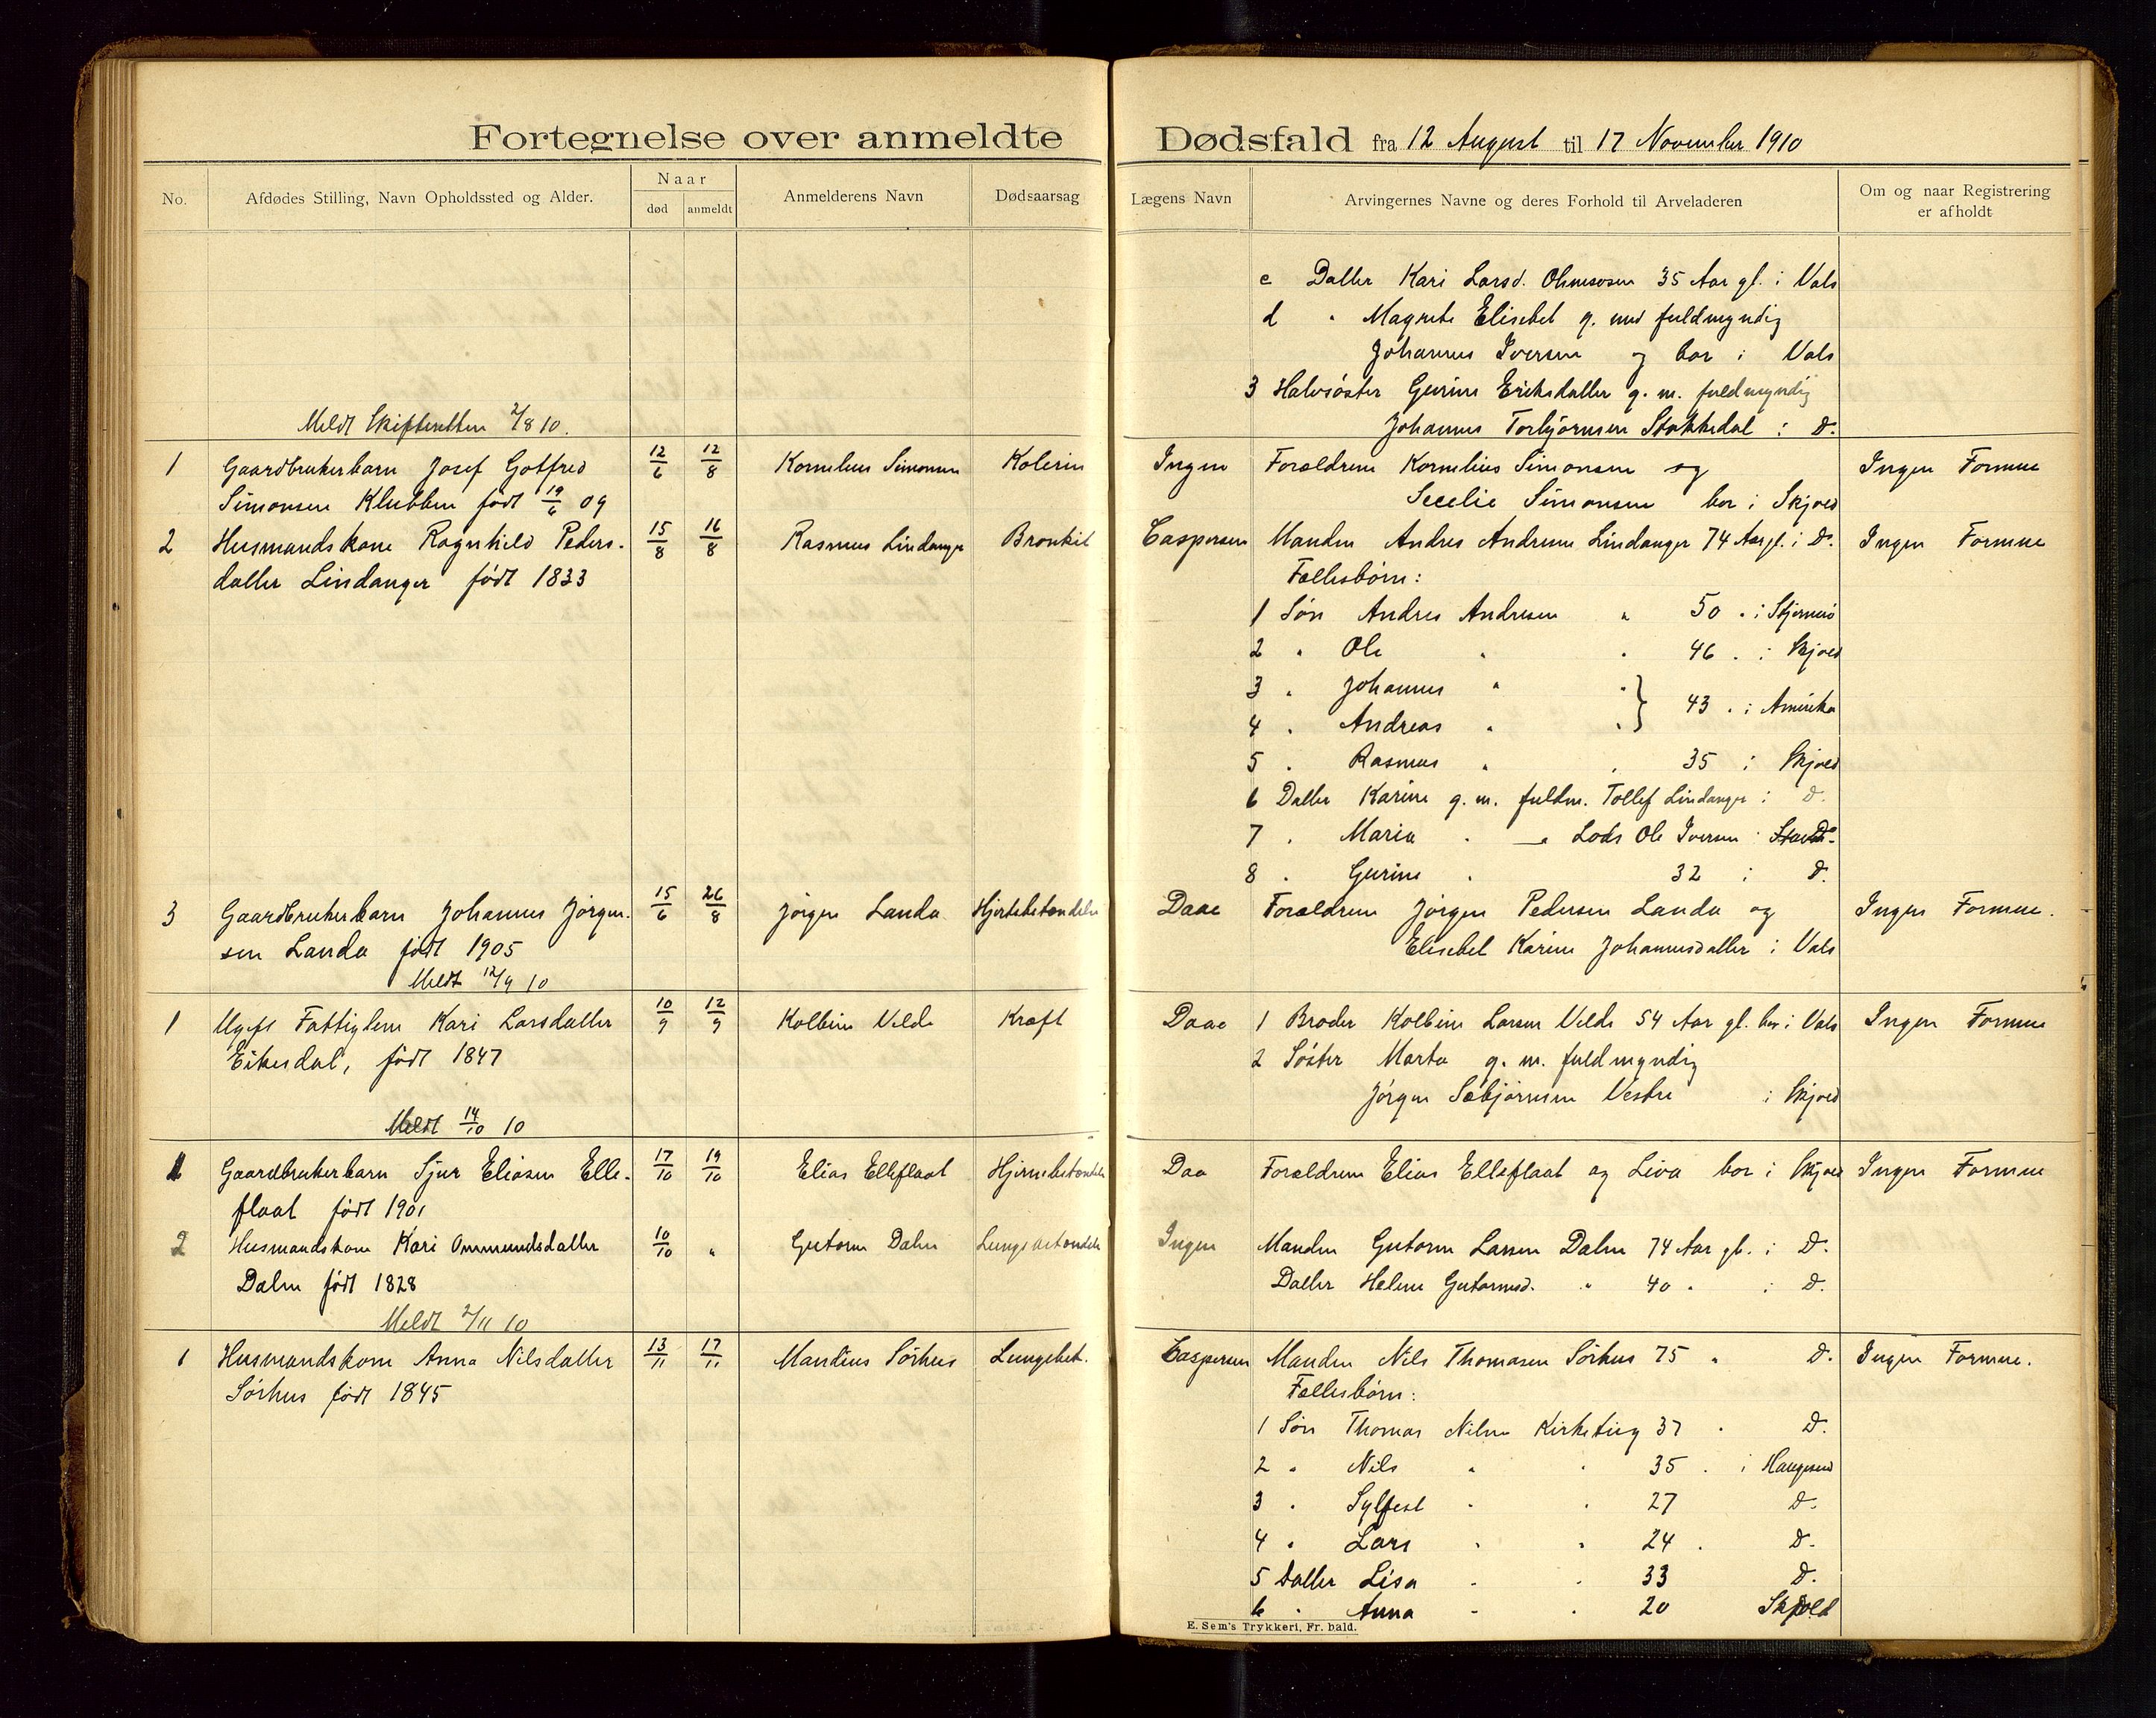 Fortegnelse over anmeldte Dødsfald fra 12 August til 17 November 1910
No. Afdødes Stilling, Navn Opholdssted og Alder. Naar død anmeldt Anmelderens Navn Dødsaarsag Lægens Navn Arvingernes Navne og deres Forhold til Arveladeren Om og naar Registrering er afholdt
c Datter Kari Larsd. 35 Aar gl. i Vats
d " Magrete Elisebet g. med fuldmyndig
Johannes Iversen og bor i Vats
3 Halvsöster Gurine Eriksdatter g. m. fuldmyndig
Meldt Skifteretten 2/8 10. Johannes Torbjörnsen Stakkedal i D.
1 Gaardbrukerbarn Josef Gotfred 12/6 12/8 Kornelius Simonsen Kolerin Ingen Forældrene Kornelius Simonsen og Ingen Formue
Simonsen Klubben født 19/6 09 Secelie Simonsen bor i Skjold
2 Husmandskone Ragnhild Peders- 15/8 16/8 Rasmus Lindanger Bronkit Caspersen Manden Andres Andresen Lindanger 74 Aar gl. i D. Ingen Formue
datter Lindanger født 1833 Fællesbörn:
1 Sön Andres Andresen " 50 " i Stjernerö
2 " Ole " " 46 " i Skjold
3 " Johannes " " } 43 " i Amerika
4 " Andreas " "
5 " Rasmus " " 35 i Skjold
6 Datter Karine g. m. fuldm. Tollef Lindanger i D.
7 " Maria " — " Lods Ole Iversen i D.
8 " Gurine " 32 i D.
3 Gaardbrukerbarn Johannes Jörgen- 15/6 26/8 Jörgen Landa Hjertebetændelse Daae Forældrene Jörgen Pedersen Landa og Ingen Formue.
sen Landa født 1905 Elisebet Karine Johannesdatter i Vats
Meldt 12/9 10
1 Ugift Fattiglem Kari Larsdatter 10/9 12/9 Kolbein Velde Kræft Daae 1 Broder Kolbein Larsen Velde 54 Aar gl. bor i Vats Ingen Formue
Eikesdal, født 1847 2 Söster Marta g. m. fuldmyndig
Jörgen Sæbjörnsen Vestre i Skjold
Meldt 14/10 10
1 Gaardbrukerbarn Sjur Eliasen Elle- 17/10 19/10 Elias Elleflaat Hjernebetændelse Daa Forældrene Elias Elleflaat og Liva bor i Skjold Ingen Formue
flaat født 1901
2 Husmandskone Kari Ommundsdatter 10/10 " Gutorm Dalen Lungebetændelse Ingen Manden Gutorm Larsen Dalen 74 Aar gl. i D.
Dalen født 1828 Datter Helene Gutormsd. " 40 " i D.
Meldt 2/11 10
1 Husmandskone Anna Nilsdatter 13/11 17/11 Mandius Sörhus Lungebet. Caspersen Manden Nils Thomasen Sörhus 75 " D. Ingen Formue.
Sörhus født 1845 Fællesbörn:
1 Sön Thomas Nilsen Kirketeig 37 " D.
2 " Nils " " 35 " i Haugesund
3 " Sylfest " " 27 D.
4 " Lars " " 24 " D.
5 Datter Lisa " " 33 D.
6 " Anna " " 20 Skjold
E. Sem's Trykkeri, Fr. hald.